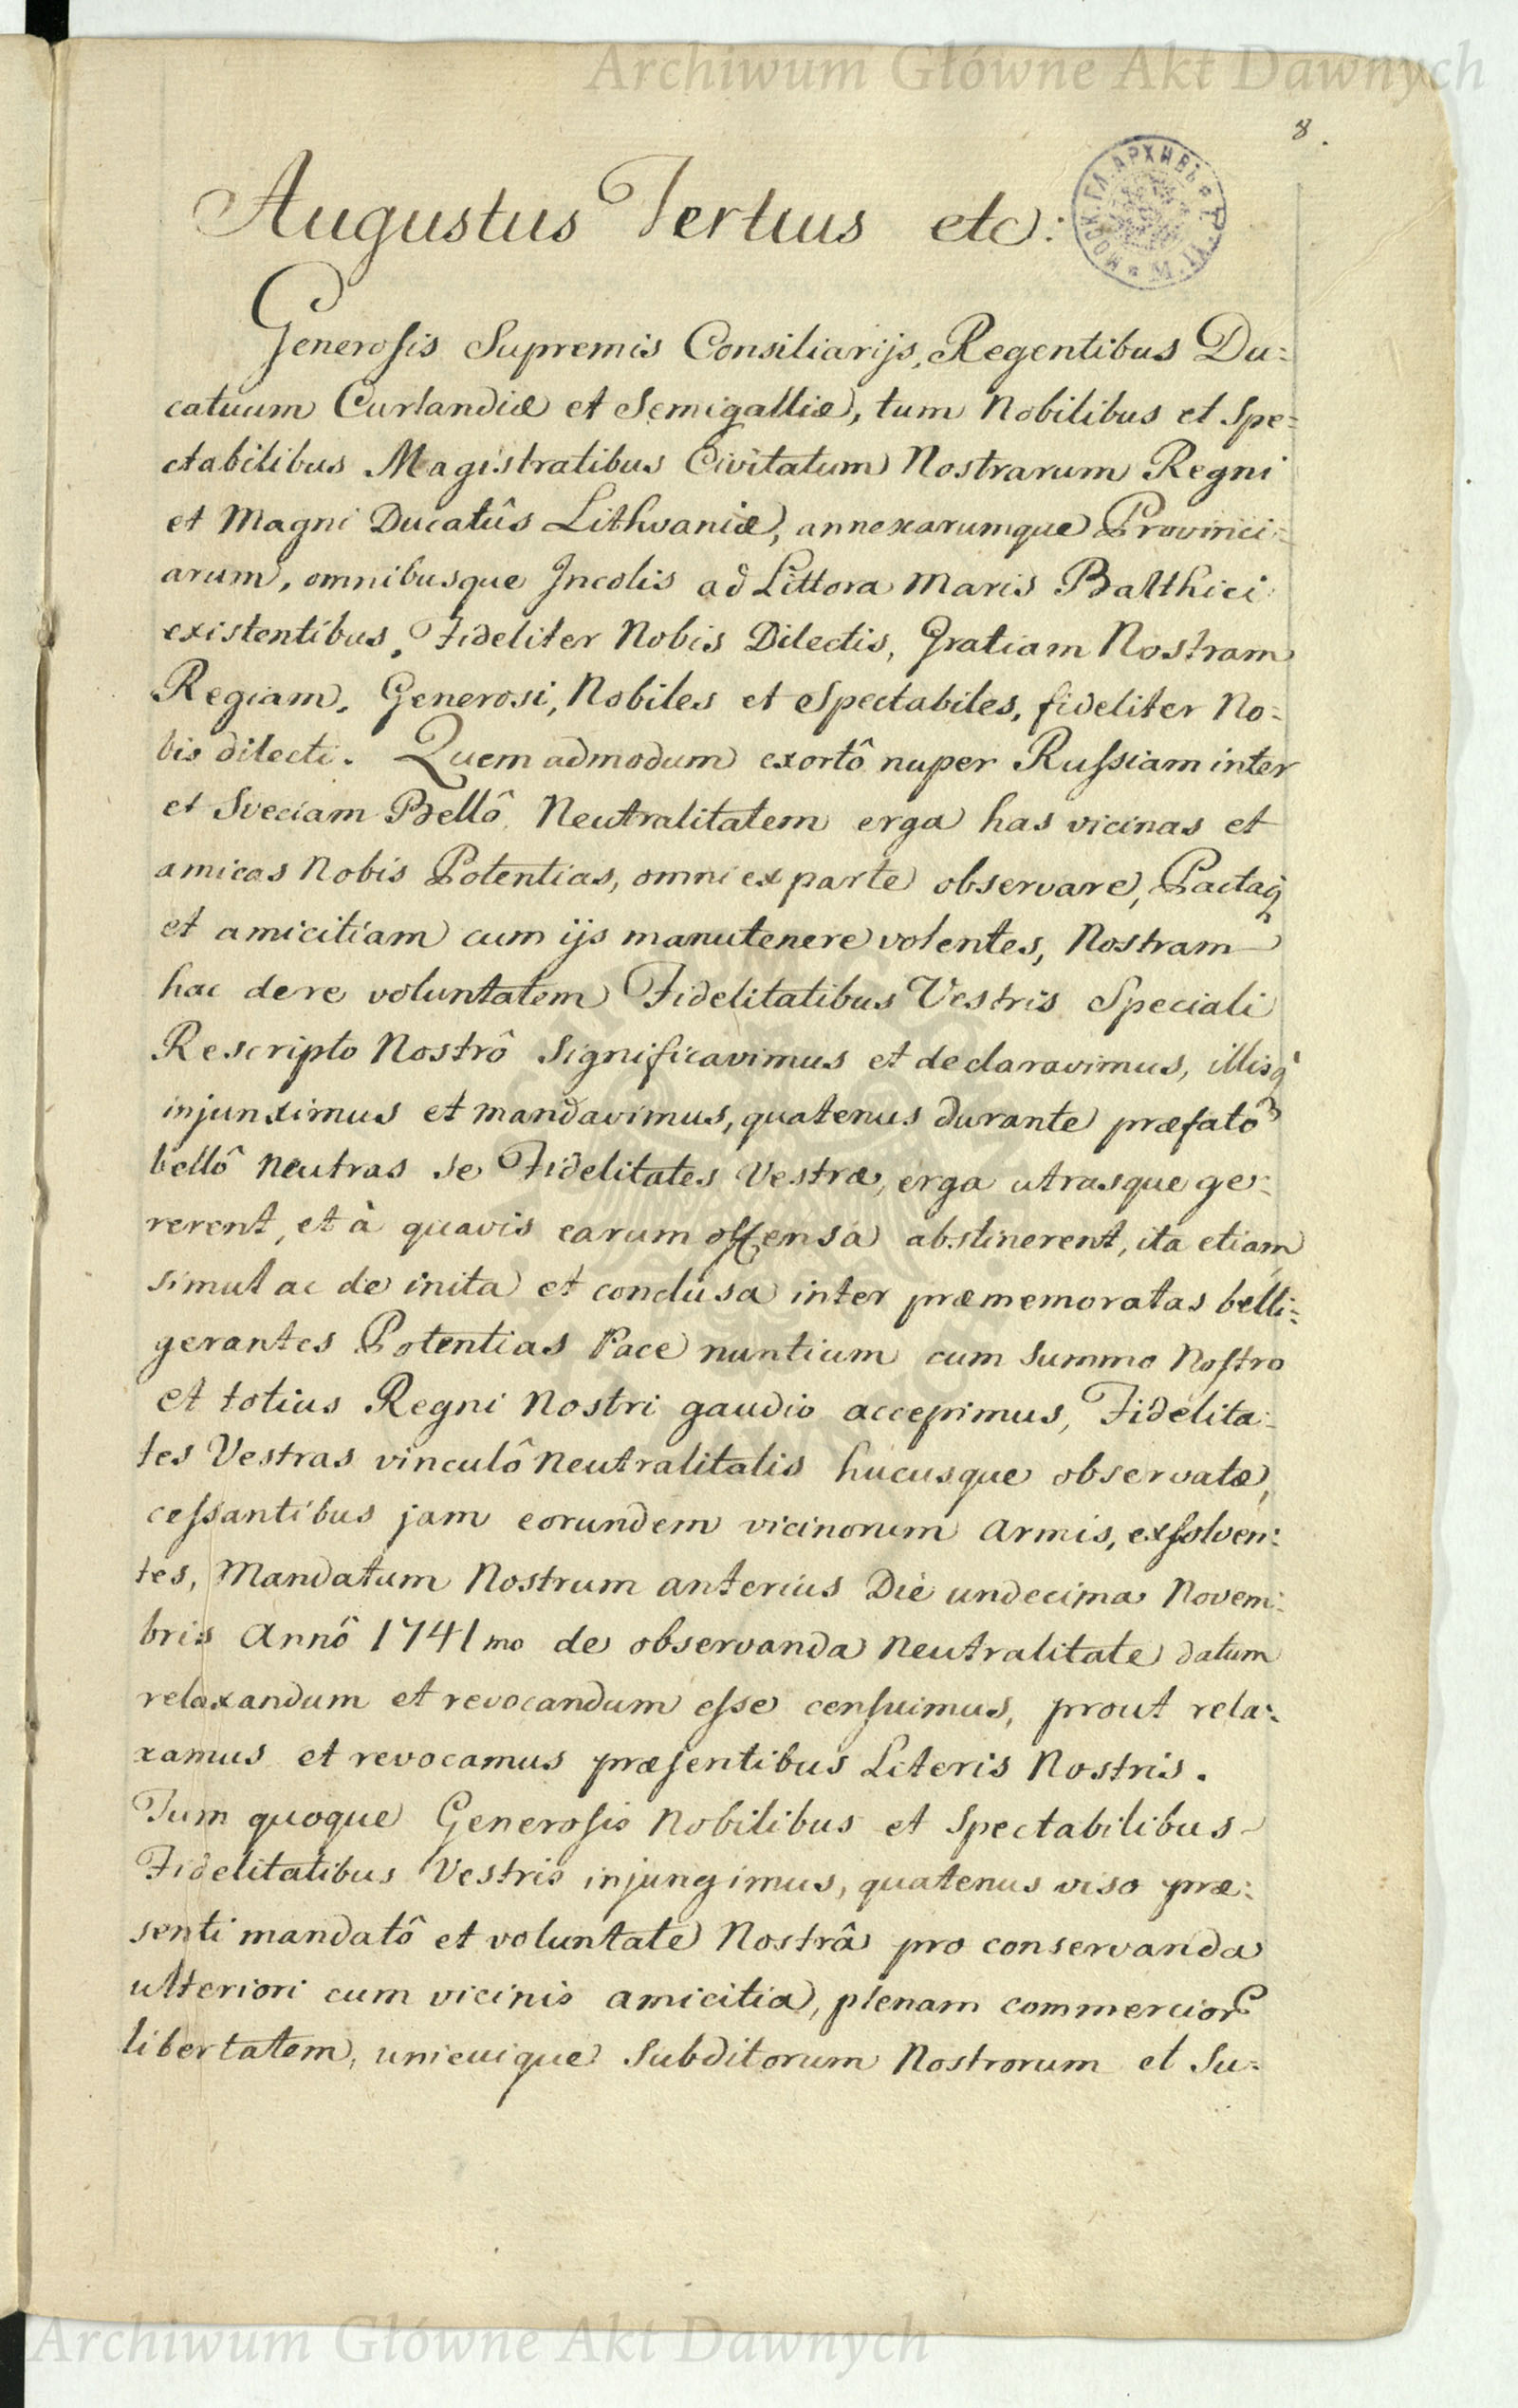 Archiwum Główne Akt Dawnych
8.
Augustus Tertius etc:
МОСК. ГЛ. АРХИВЪ
Generosis Supremis Consiliarijs, Regentibus Du=
catuum Curlandiæ et Semigalliæ, tum Nobilibus et Spe=
ctabilibus Magistratibus Civitatum Nostrarum Regni
et Magni Ducatûs Lithvaniæ, annexarumque Provinci=
arum, omnibusque Incolis ad Littora Maris Balthici
existentibus, Fideliter Nobis Dilectis, Gratiam Nostram
Regiam. Generosi, Nobiles et Spectabiles, fideliter No=
bis dilecti. Quemadmodum exortô nuper Russiam inter
et Sveciam Bellô Neutralitatem erga has vicinas et
amicas Nobis Potentias, omni ex parte observare, Pactaq
et amicitiam cum ijs manutenere volentes, Nostram
hac de re voluntatem Fidelitatibus Vestris Speciali
Rescripto Nostrô significavimus et declaravimus, illisq
injunximus et mandavimus, quatenus durante præfatô
bellô neutras se Fidelitates Vestræ, erga utrasque ge=
rerent, et à quavis earum offensa abstinerent, ita etiam
simul ac de inita et conclusa inter præmemoratas belli=
gerantes Potentias Pace nuntium cum summo Nostro
et totius Regni Nostri gaudio accepimus, Fidelita=
tes Vestras vinculô Neutralitatis hucusque observatæ,
cessantibus jam eorundem vicinorum armis, exsolven=
tes, Mandatum Nostrum anterius Die undecima Novem=
bris Annô 1741mo de observanda Neutralitate datum
relaxandum et revocandum esse censuimus, prout rela=
xamus et revocamus præsentibus Literis Nostris.
Tum quoque Generosis Nobilibus et Spectabilibus
Fidelitatibus Vestris injungimus, quatenus viso præ=
senti mandatô et voluntate Nostrâ pro conservanda
ulteriori cum vicinis amicitia, plenam commercior
libertatem, unicuique Subditorum Nostrorum et Su=
Archiwum Główne Akt Dawnych